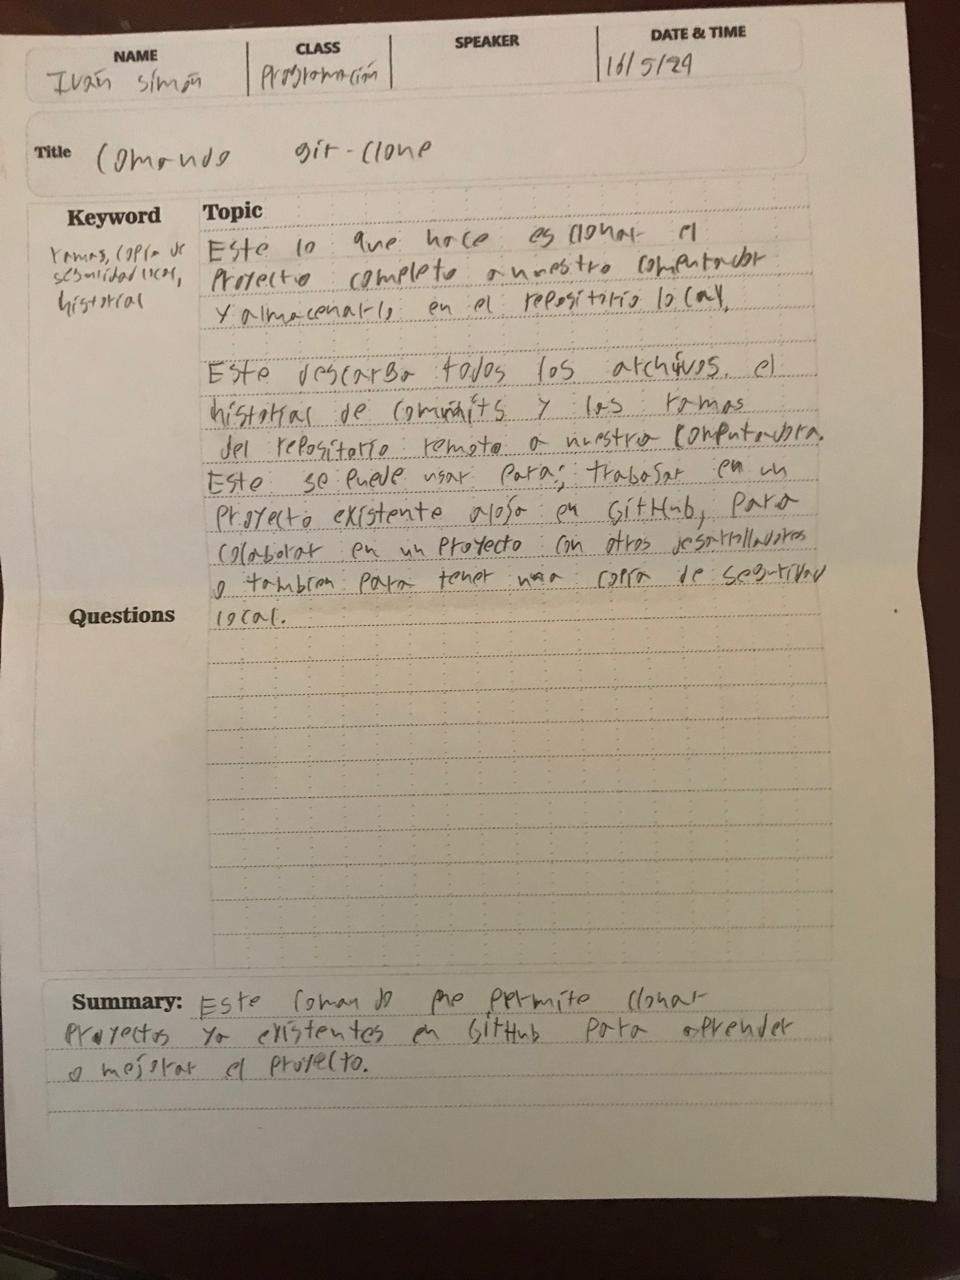 NAME CLASS SPEAKER DATE & TIME
Iván Simón Programación 16/5/24
Title Comando git-clone
Keyword Topic
ramas, copia de
seguridad local,
historial
Este lo que hace es clonar el
proyectio completo a nuestro computador
y almacenarlo en el repositorio local,
Este descarga todos los archivos, el
historial de commits y las ramas
del repositorio remoto a nuestra computadora.
Este se puede usar para: trabajar en un
proyecto existente alojo en GitHub, para
colaborar en un proyecto con otros desarrolladores
o tambien para tener una copia de seguridad
local.
Questions
Summary: Este comando me permite clonar
proyectos ya existentes en GitHub para aprender
o mejorar el proyecto.